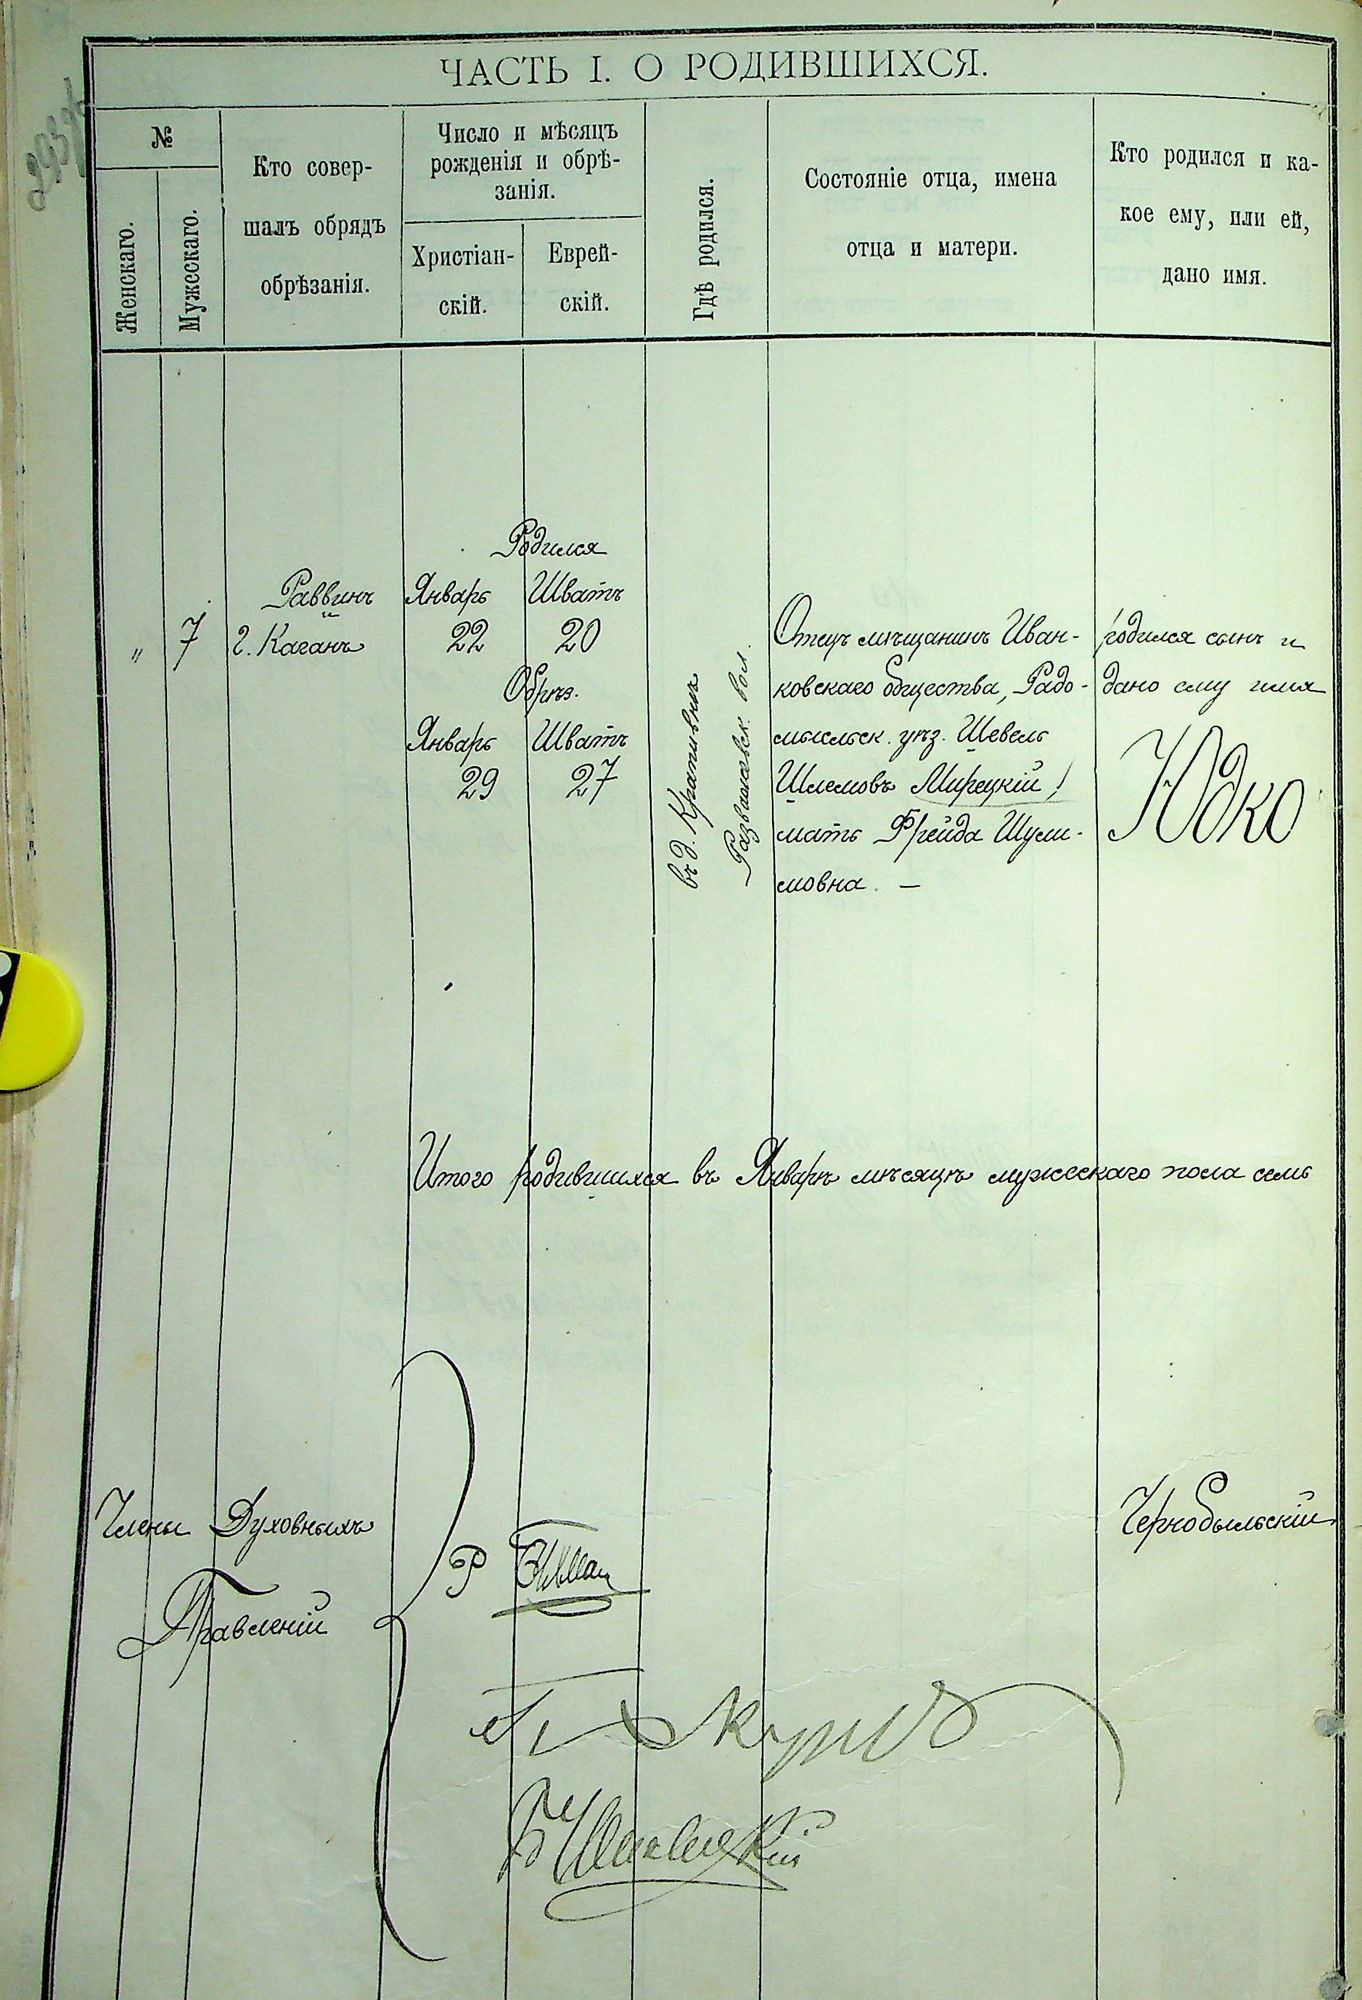 ЧАСТЬ I. О РОДИВШИХСЯ.
№
Женскаго.
Мужескаго.
Кто совер-
шалъ обрядъ
обрѣзанія.
Число и мѣсяцъ
рожденія и обрѣ-
занія.
Христіан-
скій.
Еврей-
скій.
Гдѣ родился.
Состояніе отца, имена
отца и матери.
Кто родился и ка-
кое ему, или ей,
дано имя.
"
7
Раввинъ
г. Каганъ
Родился
Январь Шватъ
22 20
Обрѣз.
Январь Шватъ
29 27
въ д. Крапивнѣ
Разважевск. вол.
Отецъ мѣщанинъ Иван-
ковскаго общества, Радо-
мысльск. уѣз. Шевель
Шлемовъ Мирецкій,
мать Фрейда Шули-
мовна. —
родился сынъ и
дано ему имя
Юдко
Итого родившихся въ Январѣ мѣсяцѣ мужескаго пола семь
Члены Духовныхъ
Правленій
Р
Чернобыльскій